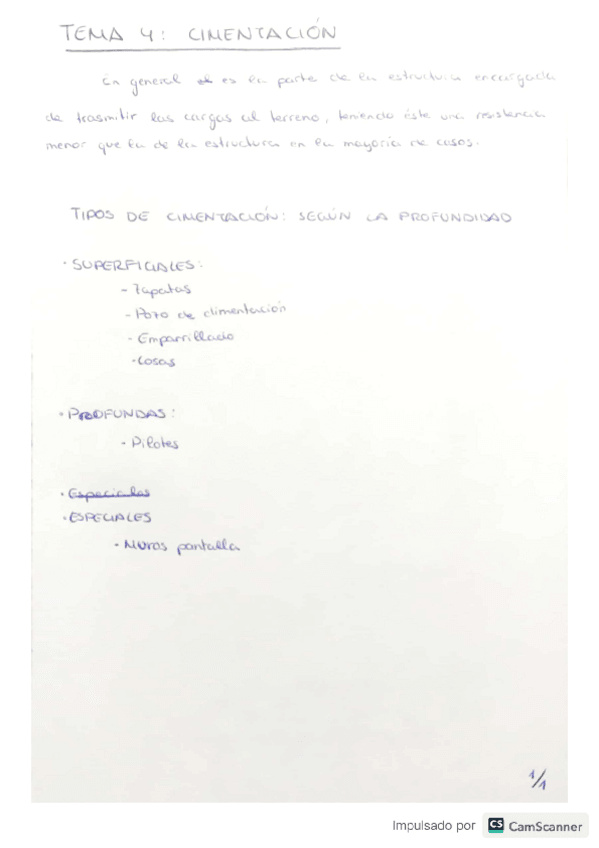 TEMA 4: CIMENTACIÓN
En general es la parte de la estructura encargada
de trasmitir las cargas al terreno, teniendo éste una resistencia
menor que la de la estructura en la mayoría de casos.
TIPOS DE CIMENTACIÓN: SEGÚN LA PROFUNDIDAD
· SUPERFICIALES:
- Zapatas
- Pozo de cimentación
- Emparrillado
- Losas
· PROFUNDAS:
- Pilotes
· Especiales
· ESPECIALES
- Muros pantalla
1/1
Impulsado por CS CamScanner